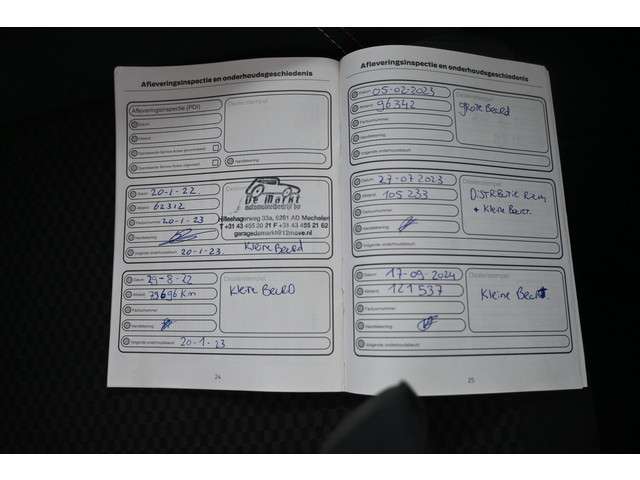 Afleveringsinspectie en onderhoudsgeschiedenis
Afleveringsinspectie (PDI)
Datum
Dealerstempel
Handtekening
Datum 20-1-22
62312
20-1-23
Handtekening
Volgende onderhoudsbeurt 20-1-23
De Markt
automobielbedrijf bv
Hilleshagerweg 33a, 6281 AD Mechelen
T +31 43 455 20 21 F +31 43 455 21 62
garagedemarkt@12move.nl
Kleine Beurd
Datum 29-8-22
79696 Km
Factuurnummer
Handtekening
Volgende onderhoudsbeurt 20-1-23
Dealerstempel
Kleine Beurd
24
Afleveringsinspectie en onderhoudsgeschiedenis
Datum 05-02-2023
96342
Factuurnummer
Handtekening
Volgende onderhoudsbeurt
Grote Beurd
Datum 27-07-2023
105233
Factuurnummer
Handtekening
Volgende onderhoudsbeurt
Dealerstempel
Distributie Riem
+ Kleine Beurt
Datum 17-09-2024
121537
Factuurnummer
Handtekening
Volgende onderhoudsbeurt
Dealerstempel
Kleine Beurt
25